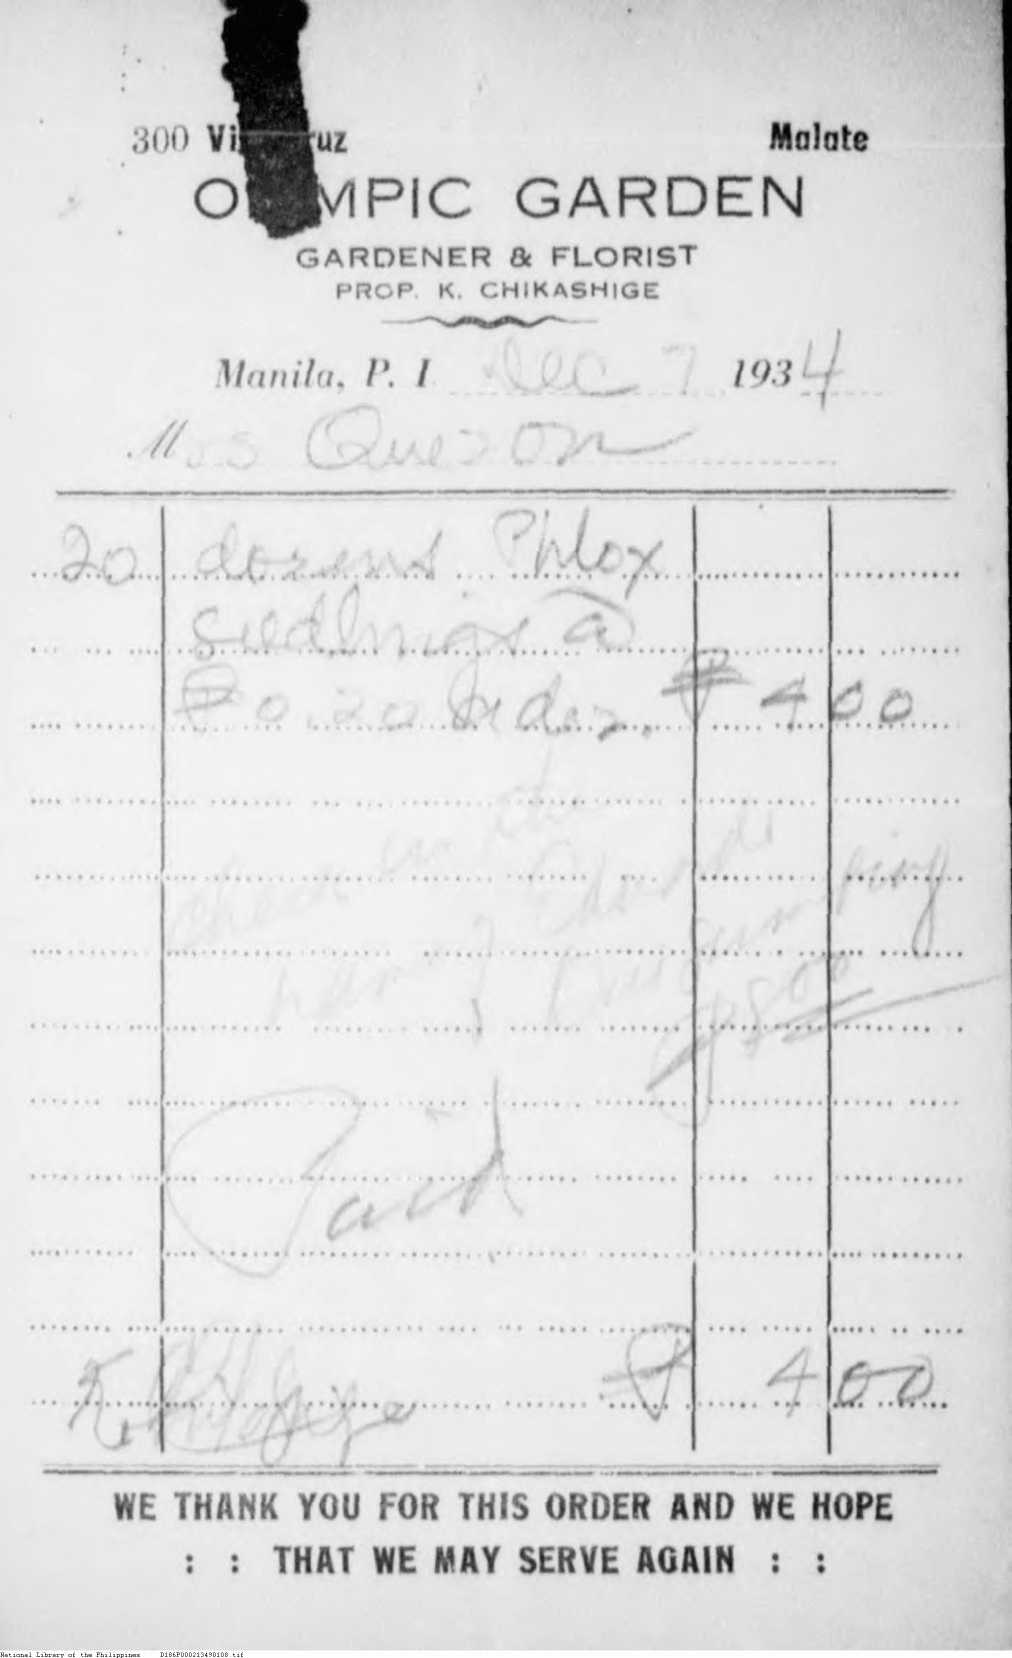 300 Vi uz Malate
O MPIC GARDEN
GARDENER & FLORIST
PROP. K. CHIKASHIGE
Manila, P. I. Dec 7 1934
Mrs Quezon
20 dozens Phlox
Seedlings @
₱0.20 a doz. ₱ 4 00
check in the
name of
Paid
₱ 4 00
WE THANK YOU FOR THIS ORDER AND WE HOPE
: : THAT WE MAY SERVE AGAIN : :
National Library of the Philippines D186P000213498108.tif